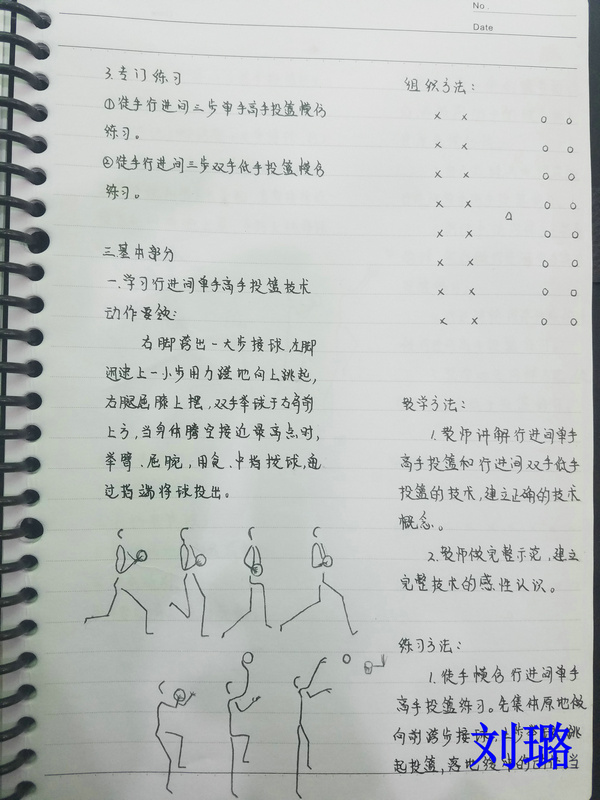 No.
Date
3.专门练习
①徒手行进间三步单手高手投篮模仿
练习。
②徒手行进间三步双手低手投篮模仿
练习。
三基本部分
一.学习行进间单手高手投篮技术
动作要领:
右脚跨出一大步接球,左脚
迅速上一小步用力蹬地向上跳起,
右腿屈膝上摆,双手举球于右肩前
上方,当身体腾空接近最高点时,
举臂、屈腕,用食、中指拨球,通
过指端将球投出。
组织方法:
× × ○ ○
× × ○ ○
× × ○ ○
× × ○ ○
△
× × ○ ○
× × ○ ○
× × ○ ○
× × ○ ○
教学方法:
1.教师讲解行进间单手
高手投篮和行进间双手低手
投篮的技术,建立正确的技术
概念。
2.教师做完整示范,建立
完整技术的感性认识。
练习方法:
1.徒手模仿行进间单手
高手投篮练习。先集体原地做
向前跨步接球,上步 跳
起投篮,落地 当
刘璐